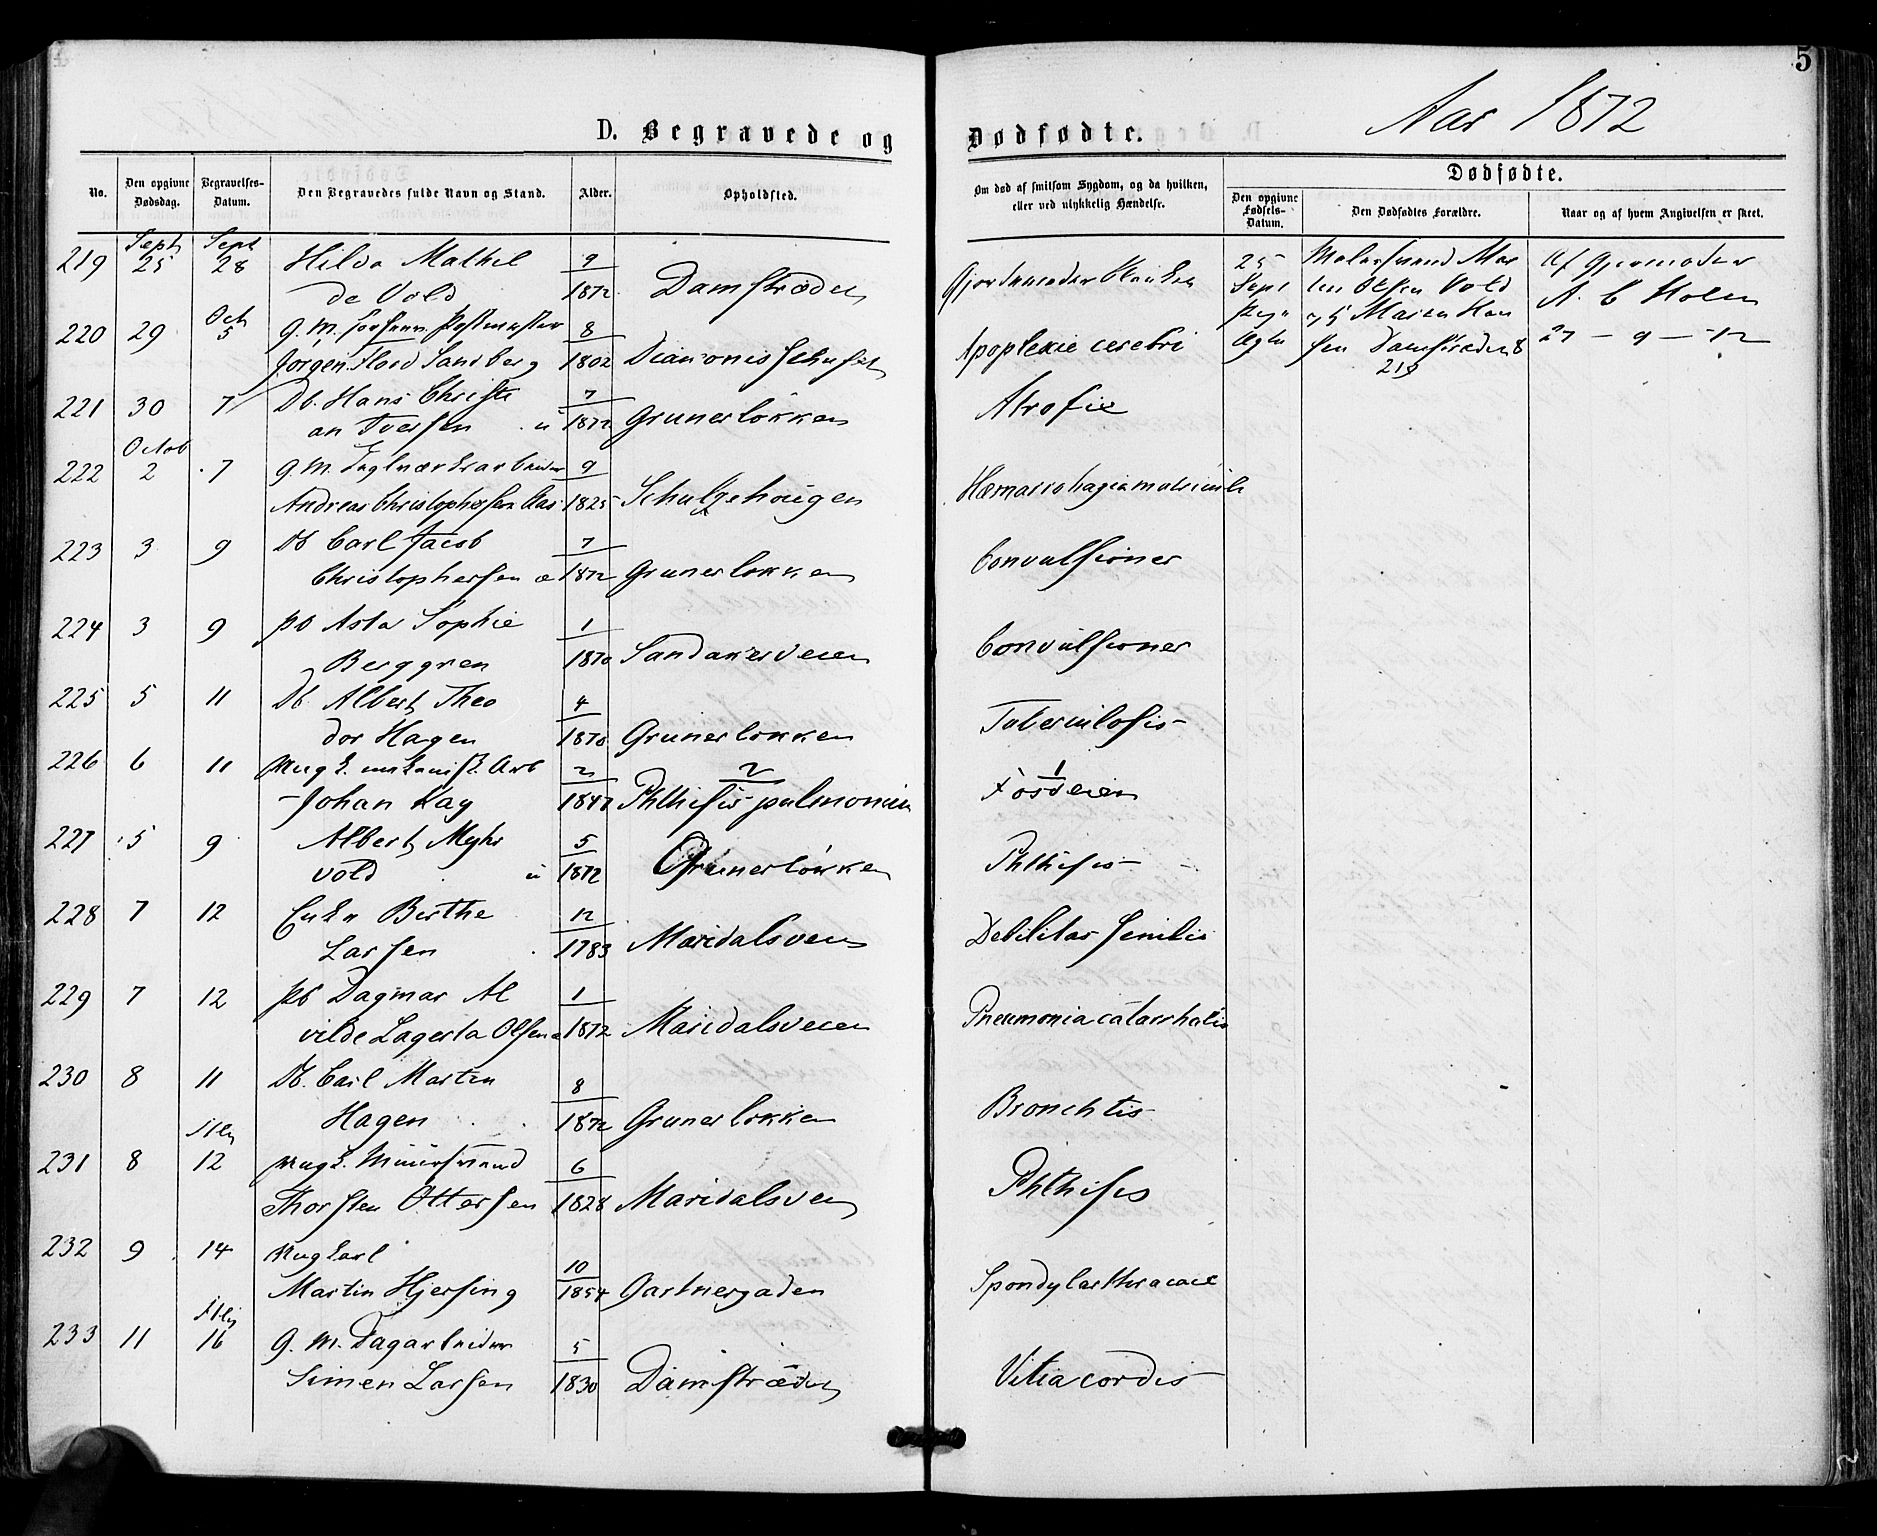 5
Aar 1872
D. Begravede og Dødfødte.
No.
Den opgivne Dødsdag.
Begravelses-Datum.
Den Begravedes fulde Navn og Stand.
Alder.
Opholdsted.
Om død af smitsom Sygdom, og da hvilken,
eller ved ulykkelig Hændelse.
Dødfødte.
Den opgivne Fødsels-Datum.
Den Dødfødtes Forældre.
Naar og af hvem Angivelsen er skeet.
Sept Sept
219 25 28 Hilda Mathil 9
de Vold 1872 Damstrædet
25 Malersvend Mar Af Gjormoder
Sept tin Olsen Vold A. C Holen
og Maren Han 27 - 9 - 72
sen Damstrædet 8
219
Oct
220 29 5 G. M. Postmester 8
Jørgen Sandberg 1802 Apoplexie cerebri
221 30 7 Db. Hans Christi 7
an Iversen u 1872 Grunerløkken Atrofie
Octob
222 2 7 G. M. 9
Andreas Christophersen Aas 1825 Schultzehougen
223 3 9 Db Carl Jacob 7
Christophersen æ 1872 Grunerløkken Convulsioner
224 3 9 Pb Asta Sophie 1
Berggren 1870 Sandakerveien Convulsioner
225 5 11 Db. Albert Theo 4
dor Hagen 1870 Grunerløkken Tuberculosis
226 6 11 Ungk. mekanisk. Arb 2
Johan Kag 1847 Phthisis pulmonum 2 Fosveien 1
227 5 9 Albert Myhr 5
vold u 1872 Grunerløkken Phthisis
228 7 12 Enke Berthe 12
Larsen 1783 Maridalsveien Debilitas senilis
229 7 12 Pb Dagmar Al 1
vilde Lagerta Olsen æ 1872 Maridalsveien Pneumonia catarrhalis
230 8 11 Db. Carl Martin 8
Hagen 1872 Grunerløkken Bronchitis
231 8 12 Ungk. Muursvend 6
Thorsten Ottersen 1828 Maridalsveien Phthisis
232 9 14 Ungkarl
Martin Hjersing 10 1854 Gartnergaden Spondylarthracace
233 11 16 G. M. Dagarbeider 5
Simen Larsen 1830 Damstrædet Vitia cordis